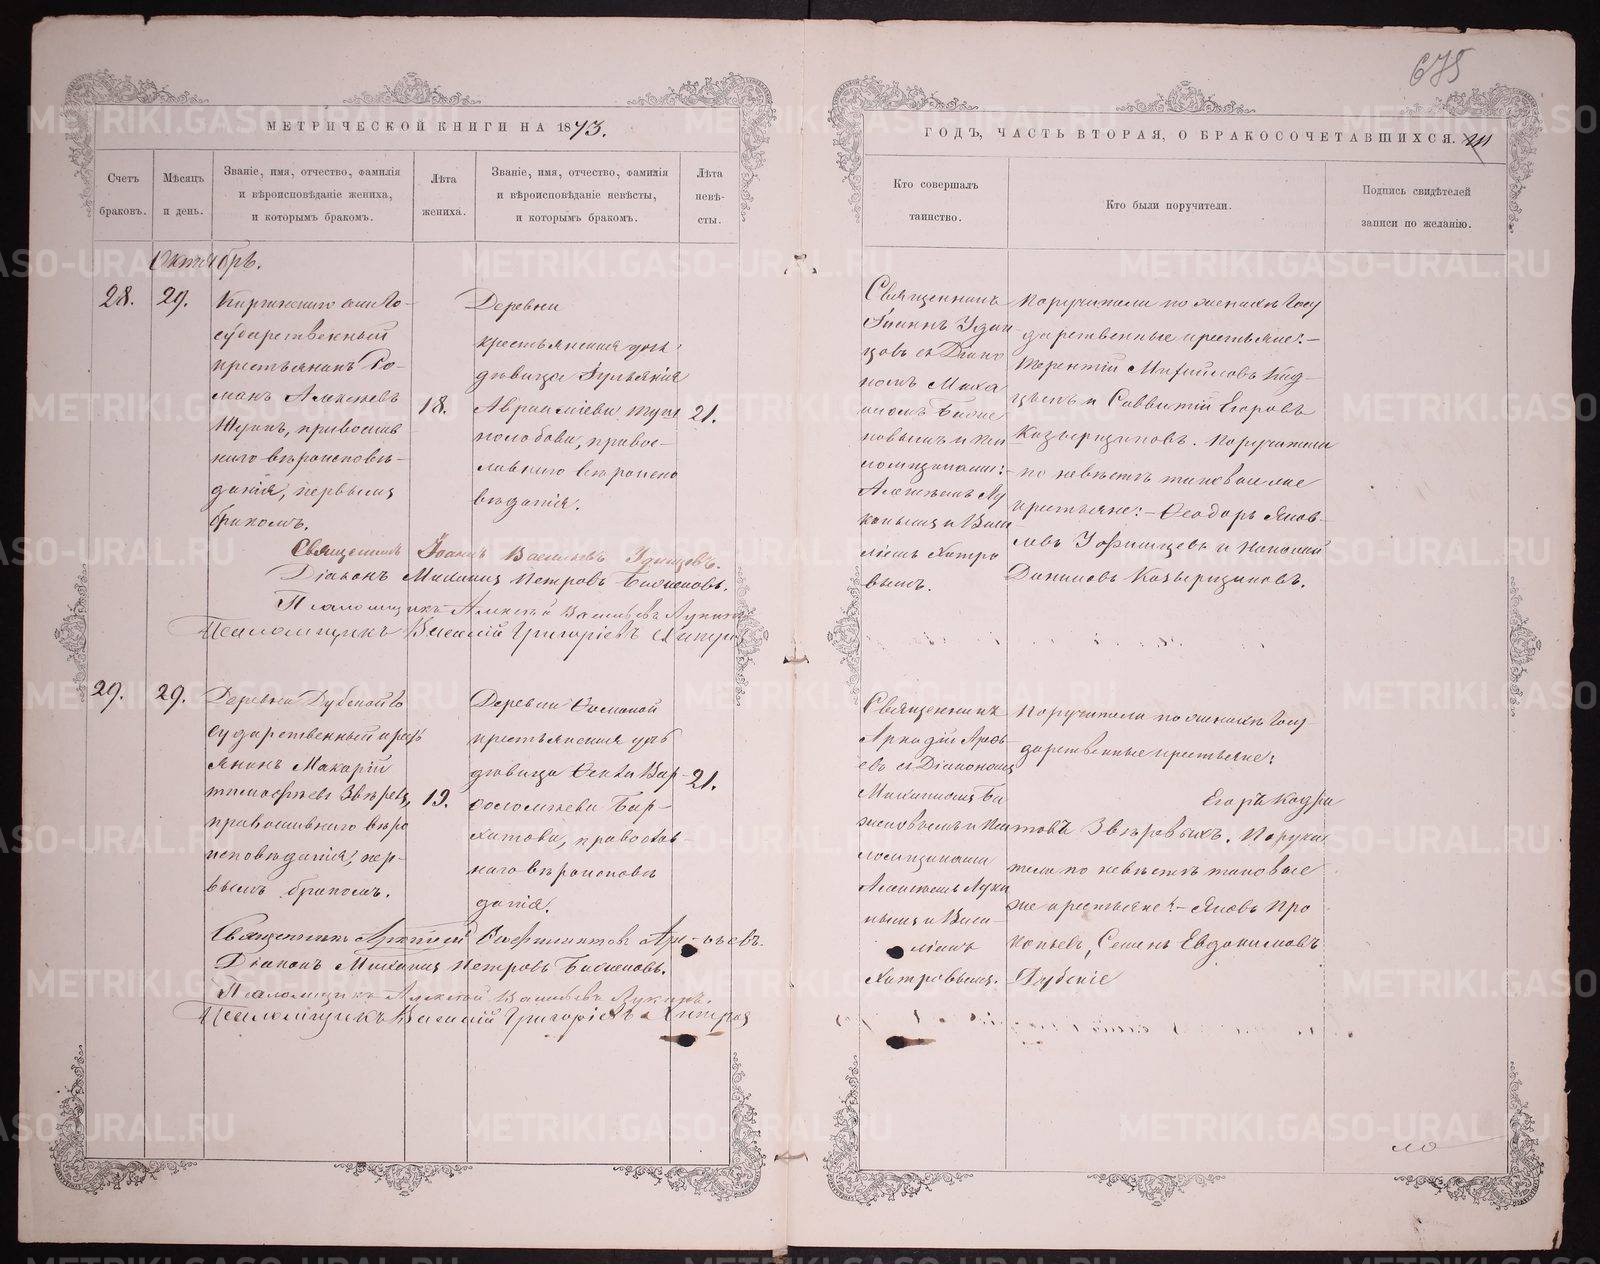 675
МЕТРИЧЕСКОЙ КНИГИ НА 1873.
Счетъ браковъ.
Мѣсяцъ и день.
Званіе, имя, отчество, фамилія и вѣроисповѣданіе жениха, и которымъ бракомъ.
Лѣта жениха.
Званіе, имя, отчество, фамилія и вѣроисповѣданіе невѣсты, и которымъ бракомъ.
Лѣта невѣ-
сты.
Октябрь.
28.
29.
государственный
крестьянинъ Ро-
манъ Алексѣевъ
православ
наго вѣроисповѣ-
данія, первымъ
бракомъ.
18.
Деревни
крестьянская дочь
дѣвица Іуліанія
Авраамiева
православ-
наго вѣроиспо
вѣданія.
21.
Священникъ Іоаннъ Васильевъ Удинцовъ.
Діаконъ Михаилъ Петровъ Баженовъ.
Псаломщикъ Алексѣй Васильевъ Лукинъ
Псаломщикъ Василій Григоріевъ Хитров
29.
29.
Деревни Дубской го
сударственный крест
янинъ Макарій
Тимофѣевъ Звѣревъ,
православнаго вѣро
исповѣданія, пер-
вымъ бракомъ.
19.
Деревни
крестьянская
дѣвица Ѳекла Вар-
ѳоломѣева Бар-
хатова, православ
наго вѣроисповѣ
данія.
21.
Священникъ Аркадій
Діаконъ Михаилъ Петровъ Баженовъ.
Псаломщикъ Алексѣй Васильевъ Лукинъ.
Псаломщикъ Василій Григоріевъ Хитров
ГОДЪ, ЧАСТЬ ВТОРАЯ, О БРАКОСОЧЕТАВШИХСЯ.
Кто совершалъ таинство.
Кто были поручители.
Подпись свидѣтелей записи по желанію.
Священникъ
Іоаннъ Удин
цовъ съ Діако
номъ Миха
иломъ Баже
новымъ и пса
ломщиками:
Алексѣемъ Лу
кинымъ и Васи
ліемъ Хитро
вымъ.
Поручители по женихѣ Госу
дарственные крестьяне:—
Терентій Михайловъ
и Савватій Егоровъ
Козырицыновъ. Поручители
по невѣстѣ таковые же
крестьяне:— Ѳеодоръ Яков-
левъ Уфинцевъ и
Даниловъ Козырицыновъ.
Священникъ
Аркадій
евъ съ Діакономъ
Михаиломъ Ба
женовымъ и пса
ломщиками
Алексѣемъ Луки
нымъ и Васи-
ліемъ
Хитровымъ.
Поручители по женихѣ Госу
дарственные крестьяне:
Егоръ Кодра
товъ Звѣревыхъ. Поручи
тели по невѣстѣ таковые
же крестьяне:— Яковъ Про
копьевъ, Семенъ Евдокимовъ
Дубскіе
METRIKI.GASO-URAL.RU